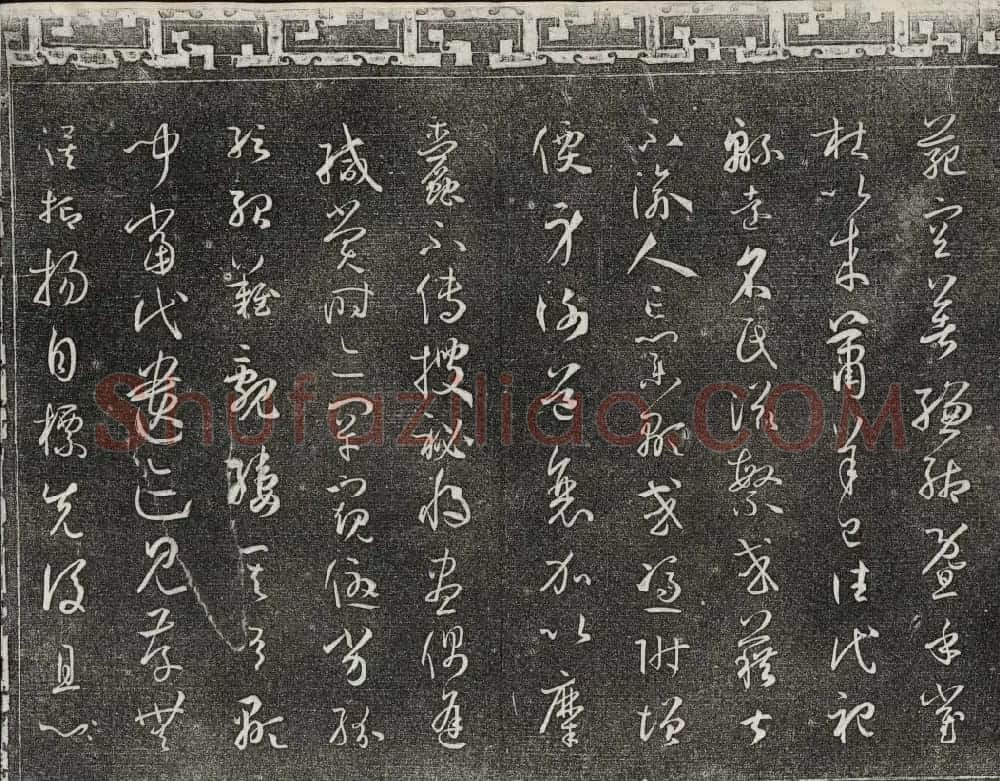 範空著縑緗暨乎崔
杜以來蕭羊已往代祀
綿遠名氏滋繁或藉甚
不渝人亡業顯或憑附增
價身謝道衰加以糜
蠹不傳搜秘將盡偶逢
緘賞時亦罕窺優劣紛
紜殆難覼縷其有顯
聞當代遺迹見存無
俟抑揚自標先後且六
Shufaziliao.COM